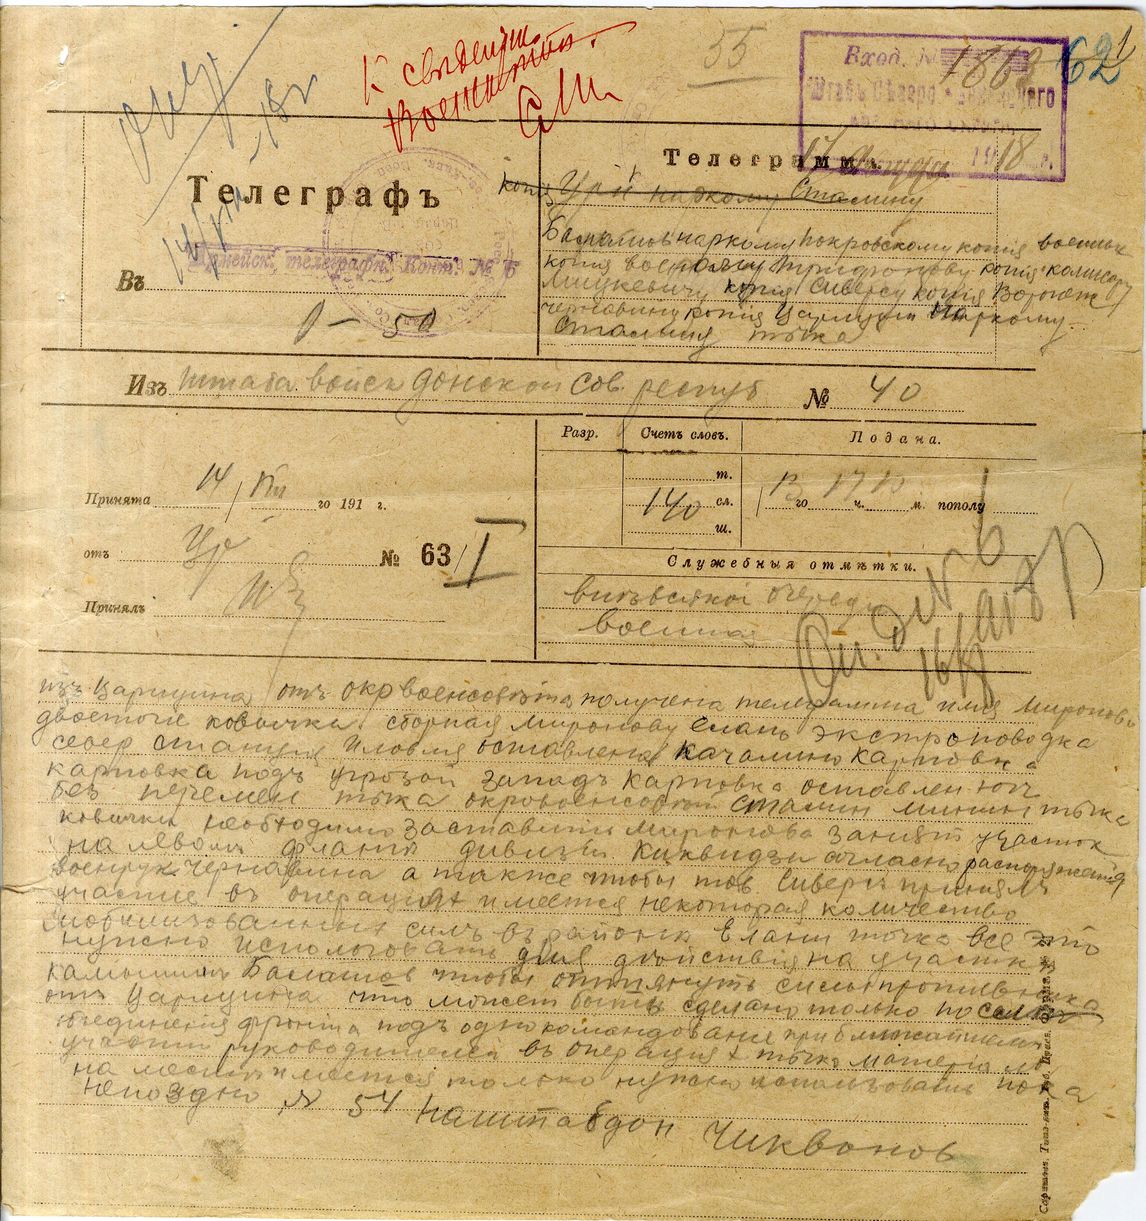 К сведению
Военмата.
55
Вход. № 1863
621
Штабъ Сѣверо
17 августа 1918 г.
Телеграфъ
Въ
Армейск. телеграфн. Конт. № 6
Телеграмма.
копия Наркому Сталину
Балашов наркому Покровскому копия
копия Трифонову копия комиссару
Мицкевичу копия Сиверсу копия Воронеж
Чернавину копия Царицын Наркому
Сталину тчка
Изъ штаба войск донской сов. респуб № 40
Разр.
Счетъ словъ.
Подана.
Принята 14/VIII го 191 г.
т.
140 сл.
ш.
13 го 17 ч. 10 м. пополу
отъ Цр № 63/I
Принялъ
Служебныя отмѣтки.
внѣ всякой очереди
военная
16/VIII
изъ Царицына отъ окрвоенсовѣта получена телеграмма имя Миронова
двоеточие кавычка сборная Миронову Елань экстроповодка
север станция Иловля оставлена Качалино Карповка
Карповка подъ угрозой западъ Карповка оставлен югъ
без перемен тчка окрвоенсовет Сталин Минин тчка
кавычки необходимо заставить Миронова занять участок
на левом фланге дивизии Киквидзи согласно распоряжения
военрук Чернавина а также чтобы тов. Сиверс принялъ
участие въ операциях имеется некоторая количество
мобилизованных силъ въ районе Елани точка все это
нужно использовать для действия на участке
Камышин Балашов чтобы оттянуть силы противника
отъ Царицына что может быть сделано только после
объединения фронта подъ одно командование при ближайшем
участии руководителя въ операциях тчка материалы
на месте имеется только нужно использовать пока
непоздно № 54 Наштабдон Чикванов